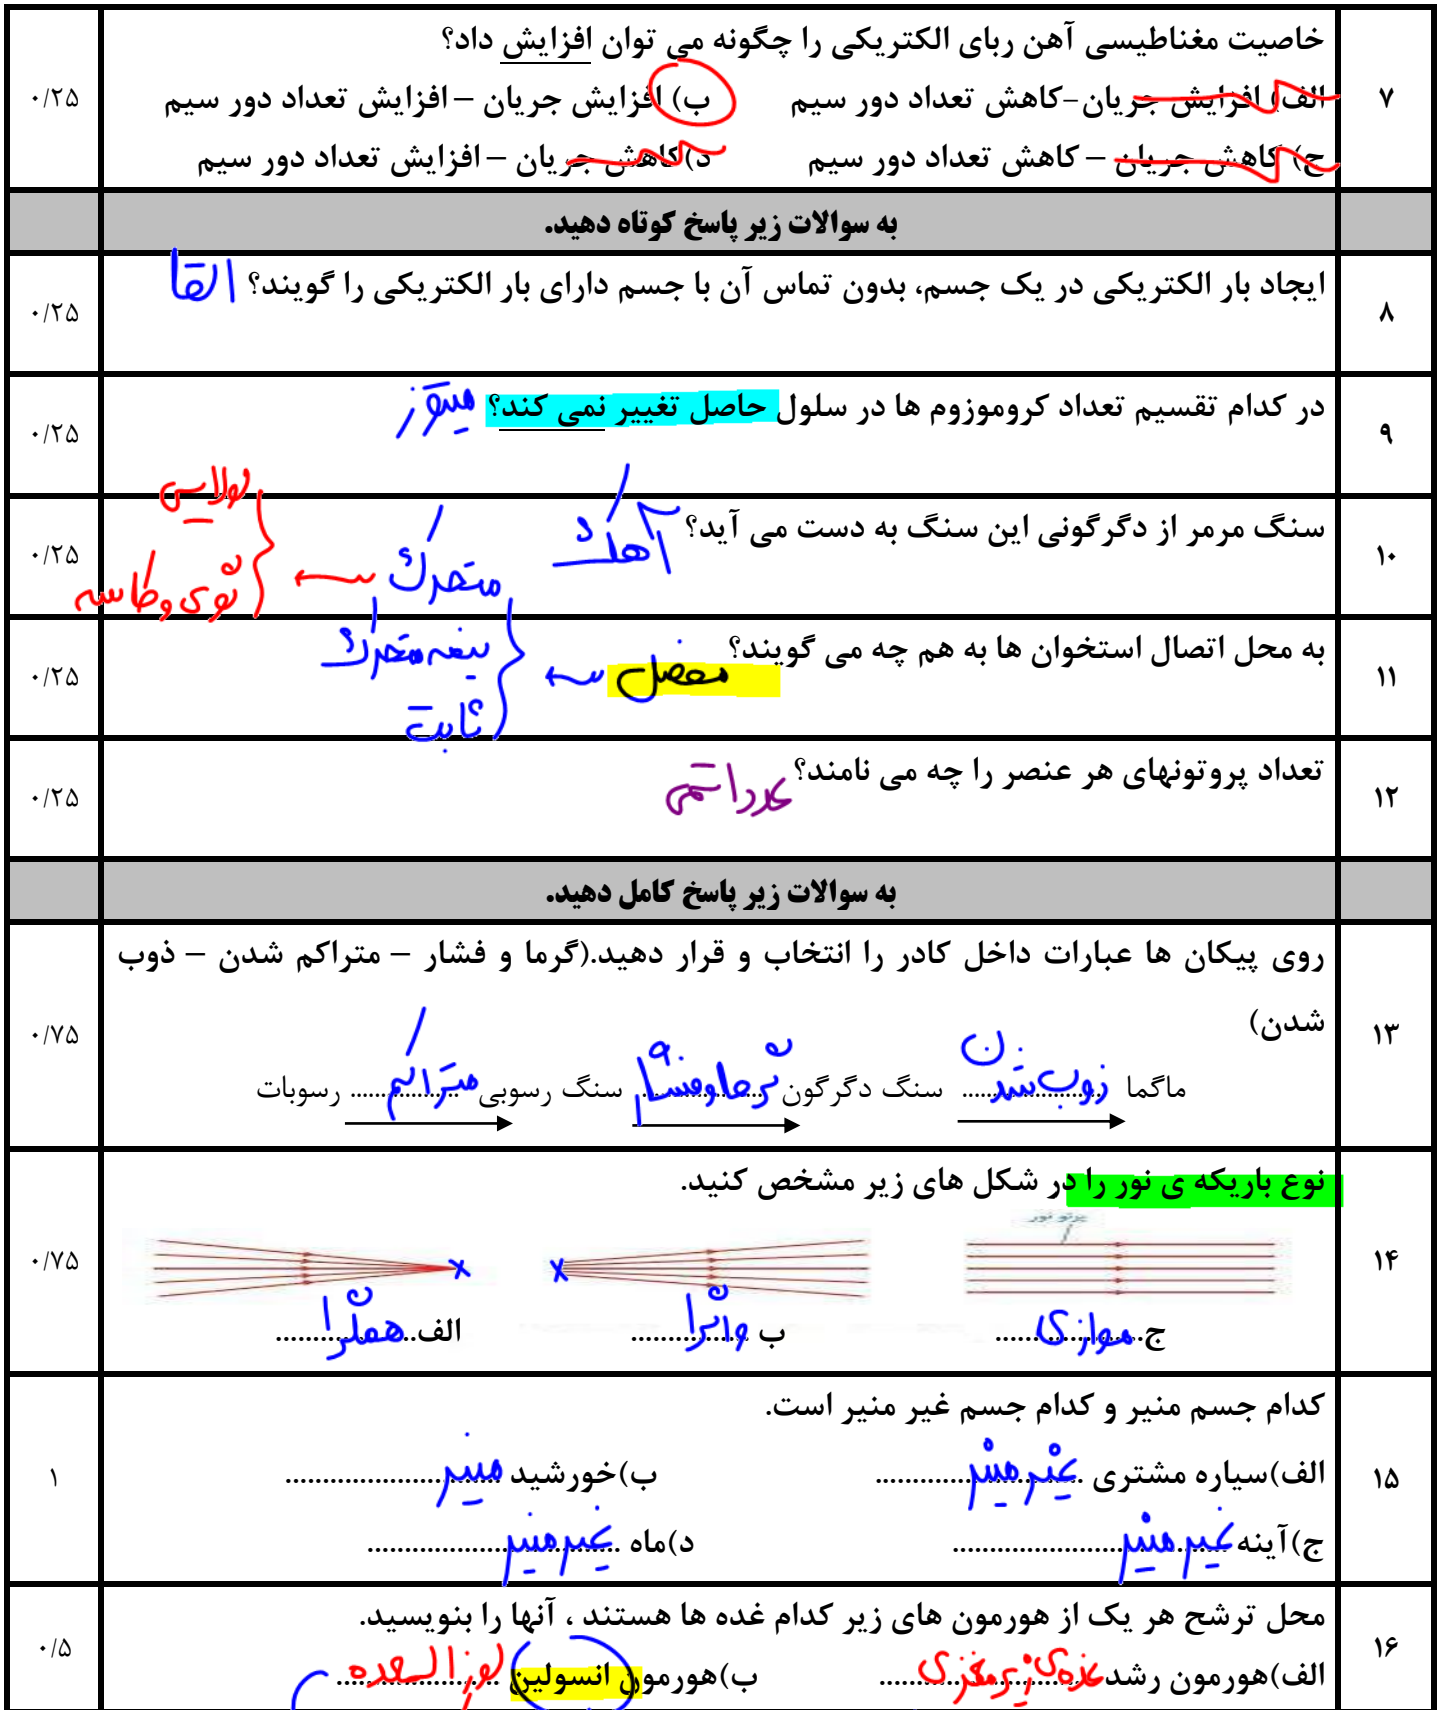 ۷
خاصیت مغناطیسی آهن ربای الکتریکی را چگونه می توان افزایش داد؟
۰/۲۵
الف) افزایش جریان-کاهش تعداد دور سیم ب) افزایش جریان – افزایش تعداد دور سیم
ج) کاهش جریان – کاهش تعداد دور سیم د)کاهش جریان – افزایش تعداد دور سیم
به سوالات زیر پاسخ کوتاه دهید.
۸
ایجاد بار الکتریکی در یک جسم، بدون تماس آن با جسم دارای بار الکتریکی را گویند؟ القا
۰/۲۵
۹
در کدام تقسیم تعداد کروموزوم ها در سلول حاصل تغییر نمی کند؟ میتوز
۰/۲۵
۱۰
سنگ مرمر از دگرگونی این سنگ به دست می آید؟ آهک
۰/۲۵
لولایی
متحرک
گوی و کاسه
۱۱
به محل اتصال استخوان ها به هم چه می گویند؟
مفصل
نیمه متحرک
ثابت
۰/۲۵
۱۲
تعداد پروتونهای هر عنصر را چه می نامند؟ عدد اتمی
۰/۲۵
به سوالات زیر پاسخ کامل دهید.
۱۳
روی پیکان ها عبارات داخل کادر را انتخاب و قرار دهید.(گرما و فشار – متراکم شدن – ذوب
شدن)
۰/۷۵
ماگما ذوب شدن سنگ دگرگون گرما و فشار سنگ رسوبی متراکم رسوبات
۱۴
نوع باریکه ی نور را در شکل های زیر مشخص کنید.
پرتو نور
۰/۷۵
ج موازی ب واگرا الف همگرا
۱۵
کدام جسم منیر و کدام جسم غیر منیر است.
۱
الف)سیاره مشتری غیر منیر ب)خورشید منیر
ج)آینه غیر منیر د)ماه غیر منیر
۱۶
محل ترشح هر یک از هورمون های زیر کدام غده ها هستند ، آنها را بنویسید.
۰/۵
الف)هورمون رشد غده‌ی زیر مغزی ب)هورمون انسولین لوزالمعده